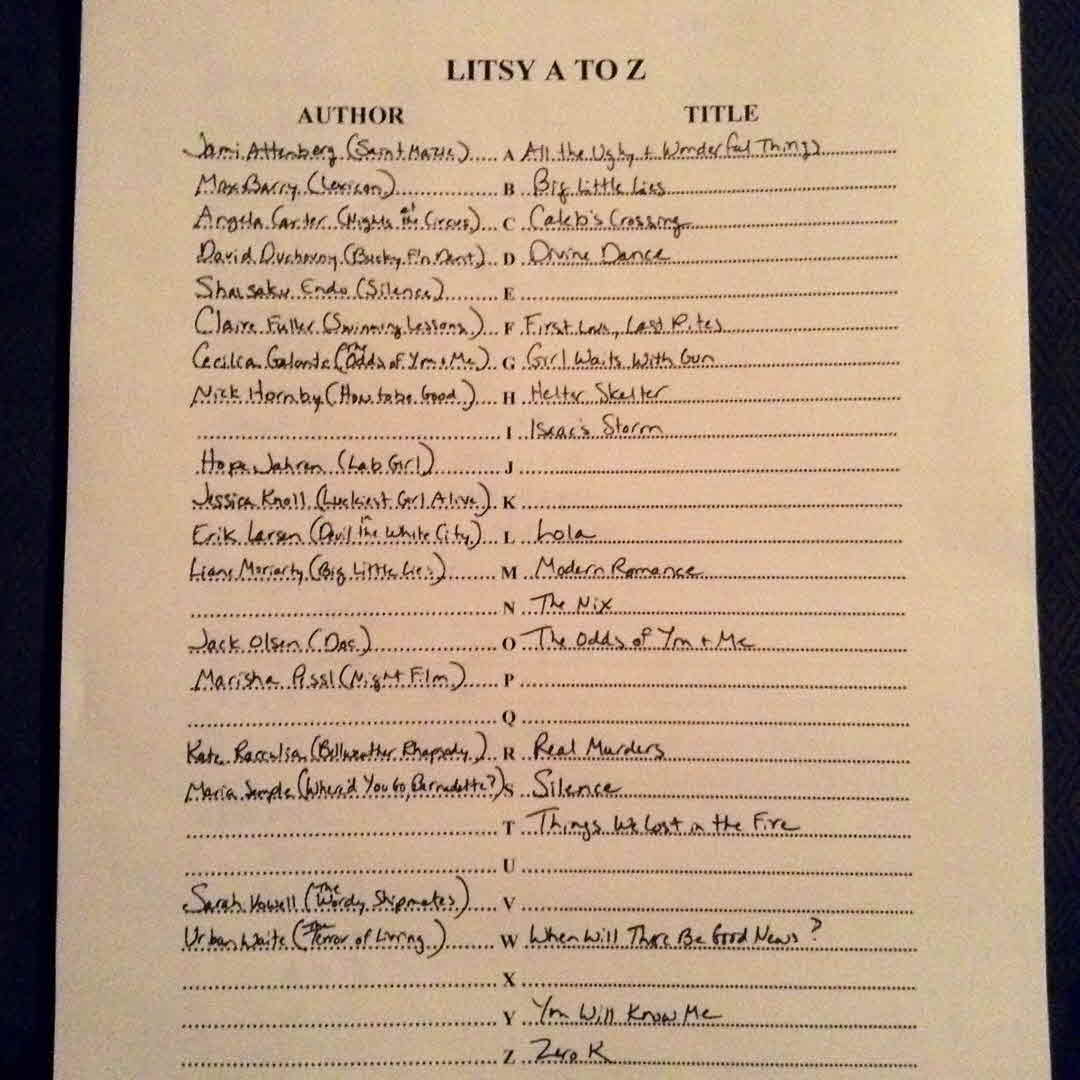 LITSY A TO Z
AUTHOR TITLE
Jami Attenberg (Saint Mazie) A All the Ugly + Wonderful Things
Max Barry (Lexicon) B Big Little Lies
Angela Carter (Nights at the Circus) C Caleb's Crossing
David Duchovny (Bucky F'n Dent) D Divine Dance
Shusaku Endo (Silence) E
Claire Fuller (Swimming Lessons) F First Love, Last Rites
Cecilia Galante (The Odds of You + Me) G Girl Waits With Gun
Nick Hornby (How to be Good) H Helter Skelter
I Isaac's Storm
Hope Jahren (Lab Girl) J
Jessica Knoll (Luckiest Girl Alive) K
Erik Larsen (Devil in the White City) L Lola
Liane Moriarty (Big Little Lies) M Modern Romance
N The Nix
Jack Olsen (Doc) O The Odds of You + Me
Marisha Pessl (Night Film) P
Q
Kate Racculia (Bellweather Rhapsody) R Real Murders
Maria Semple (Where'd You Go, Bernadette?) S Silence
T Things We Lost in the Fire
U
Sarah Vowell (The Wordy Shipmates) V
Urban Waite (The Terror of Living) W When Will There Be Good News?
X
Y You Will Know Me
Z Zero K